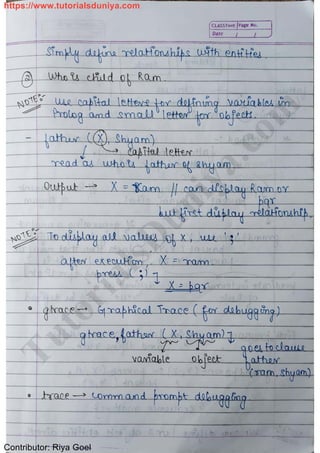 https://www.tutorialsduniya.com
CLASSTIME Page No.
Date / /
Simply define relationships with entities.
② Who is child of Ram.
NOTE:- Use capital letters for defining variables in
Prolog and small letter for objects.
- father (X, Shyam)
capital letter
read as who is father of Shyam.
Output → X = Ram // can display Ram or
pqr
but first display relationship.
NOTE:- To display all values of X, use ';'
after execution, X = ram.
press (;)
X = pqr
• gtrace → Graphical Trace (for debugging)
gtrace, father (X, Shyam)
goes to clause
variable object father
(ram, Shyam)
• trace → command prompt debugging.
Contributor: Riya Goel